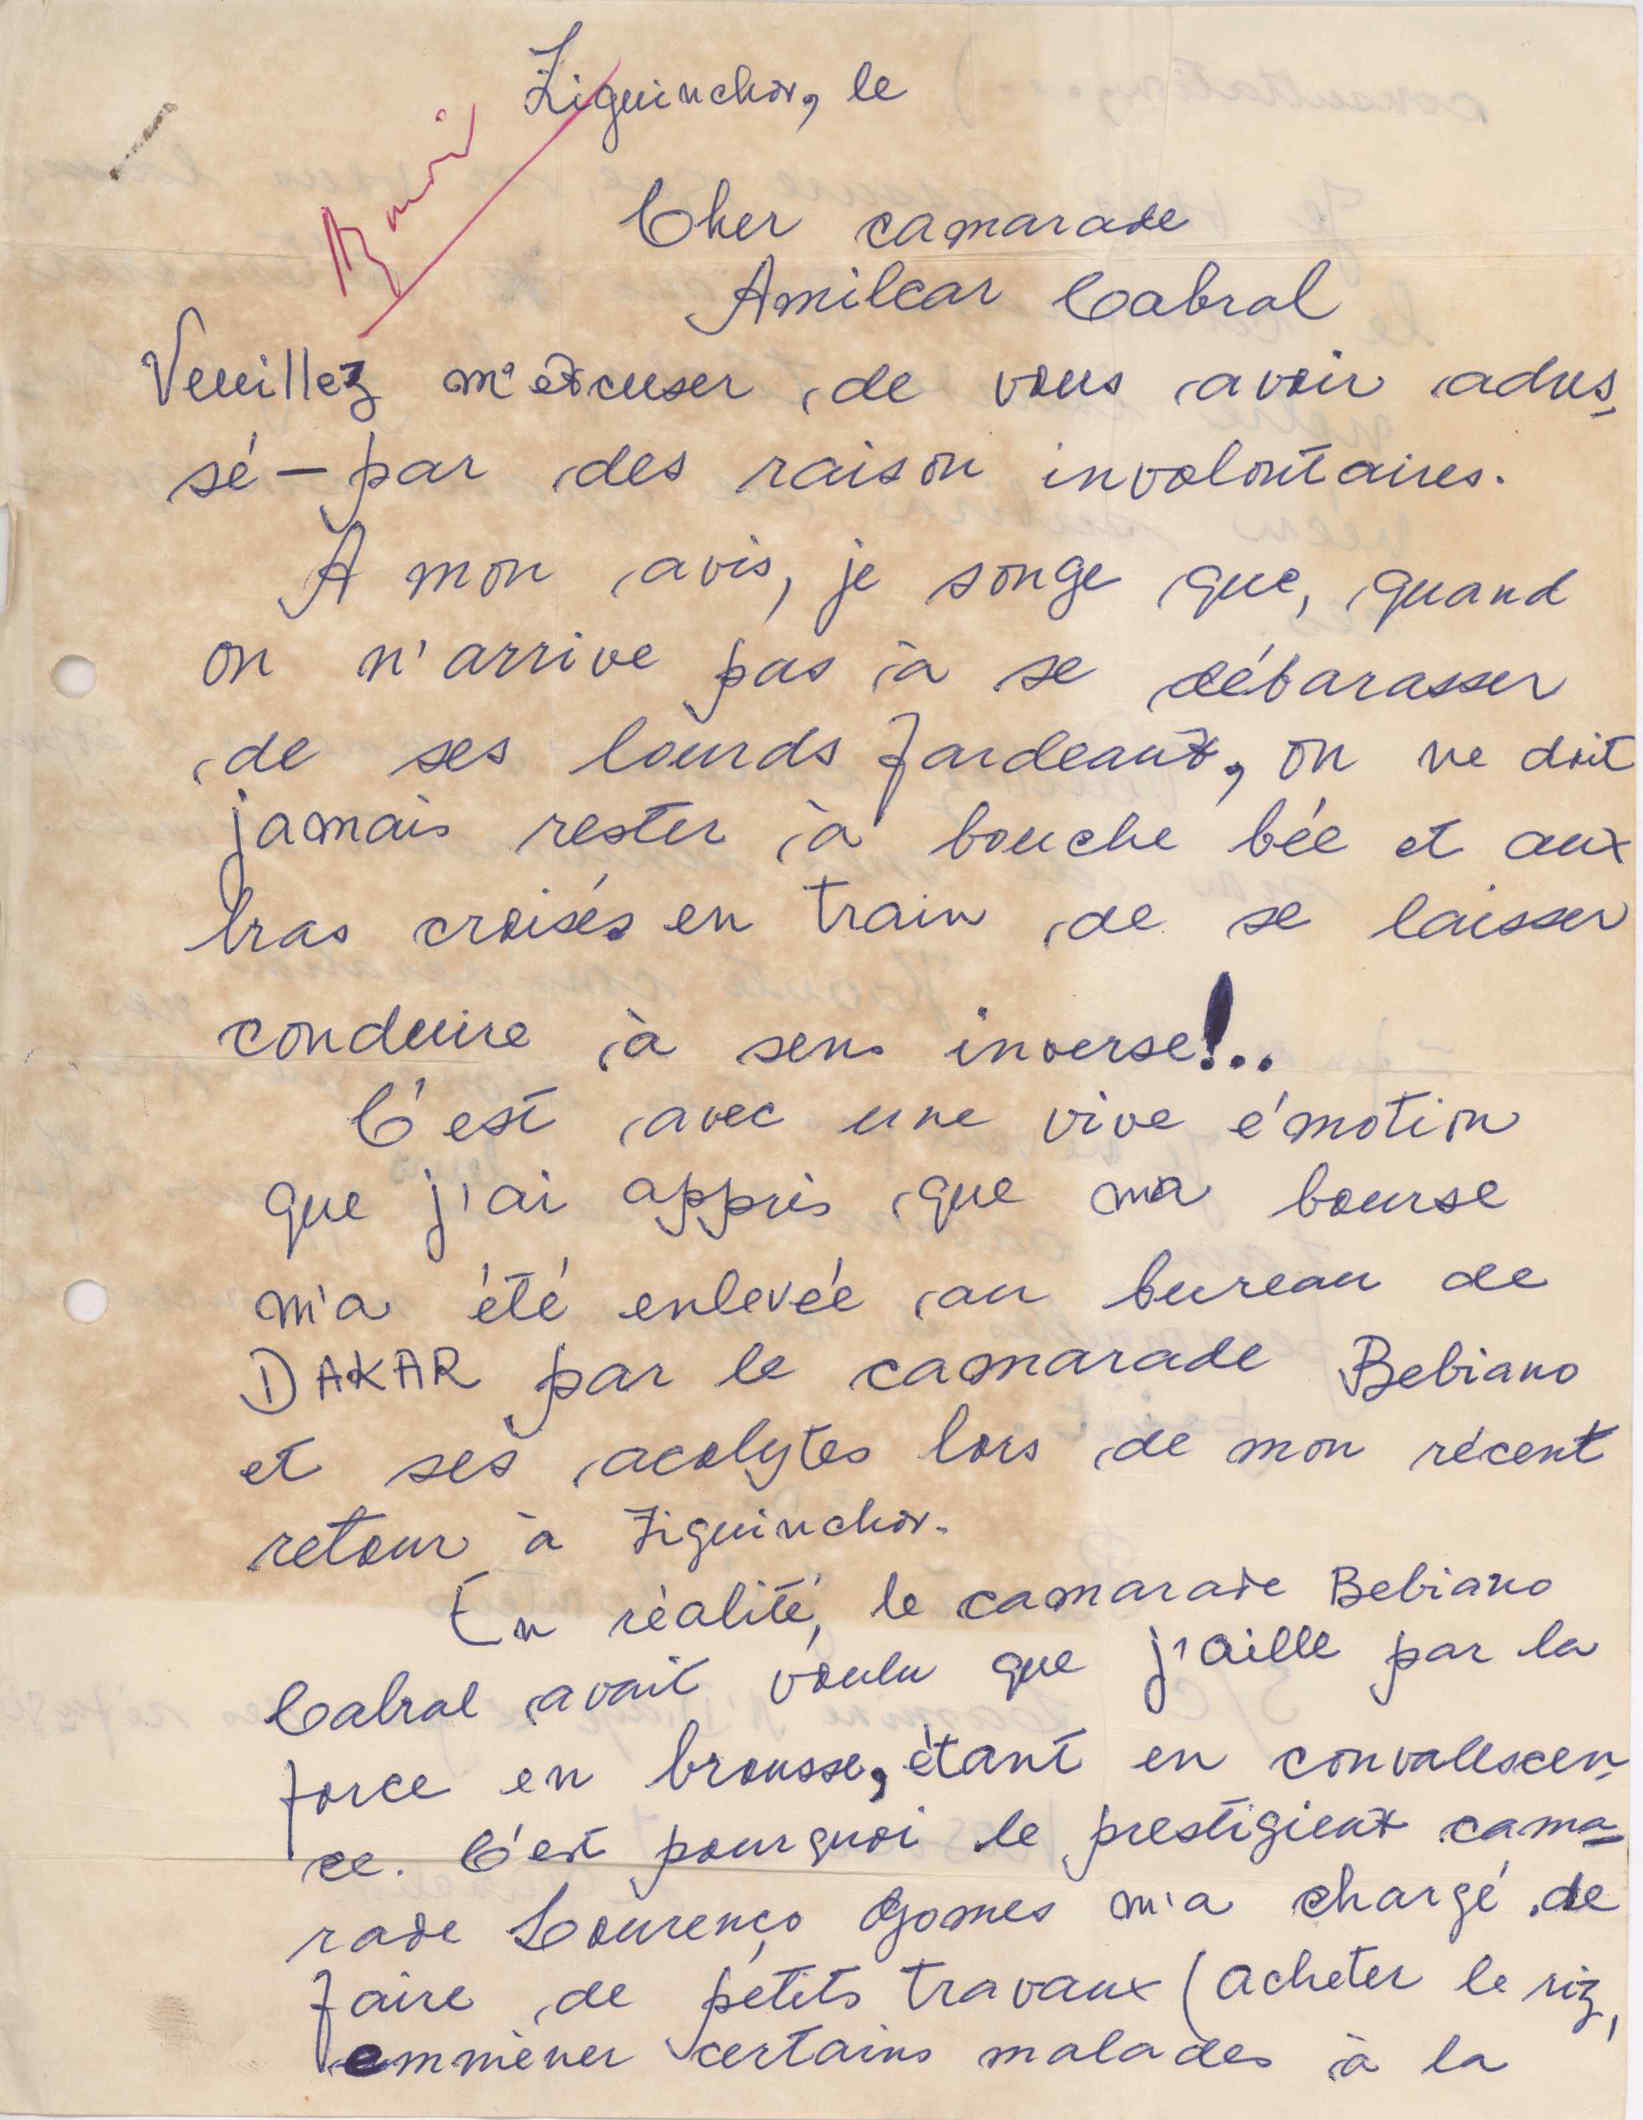 Ziguinchor, le
Cher camarade
Amilcar Cabral
Veuillez m'excuser de vous avoir adres-
sé - par des raison involontaires.
A mon avis, je songe que, quand
on n'arrive pas à se débarasser
de ses lourds fardeaux, on ne doit
jamais rester à bouche bée et aux
bras croisés en train de se laisser
conduire à sens inverse!..
C'est avec une vive émotion
que j'ai appris que ma bourse
m'a été enlevée au bureau de
DAKAR par le camarade Bebiano
et ses acolytes lors de mon récent
retour à Ziguinchor.
En réalité, le camarade Bebiano
Cabral avait voulu que j'aille par la
force en brousse, étant en convalescen-
ce. C'est pourquoi le prestigieux cama-
rade Lourenço Gomes m'a chargé de
faire de petits travaux (acheter le riz,
emmèner certains malades à la